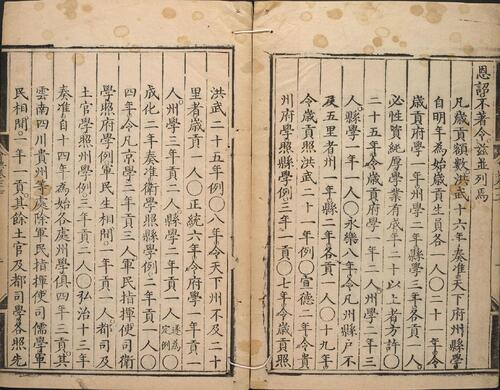 恩詔不著令茲並列焉
凡歲貢額數洪武十六年奏准天下府州縣學
自明年為始歲貢生員各一人〇二十一年令
歲貢府學一年州學二年縣學三年各貢一人
必性資純厚學業有成年二十以上者方許〇
二十五年令歲貢府學一年二人州學二年三
人縣學一年一人〇永樂八年令凡州縣戶不
及五里者州一年縣二年各貢一人〇十九年
令歲貢照洪武二十一年例〇宣德二年令貢
州府學照縣學例三年一貢〇七年令歲貢照
洪武二十五年例〇八年令天下州不及二十
里者歲貢一人〇正統六年令府學一年貢一
人州學三年貢二人縣學二年貢一人遂為定例〇
成化二年奏准衛學照縣學例二年貢一人〇
四年令凡京學二年貢三人軍民指揮使司衛
學照府學例軍民生相間一年貢一人都司及
土官學照州學例三年貢二人〇弘治十三年
奏准自十四年為始各處州學俱四年三貢其
雲南四川貴州等處除軍民指揮使司儒學軍
民相間一年一貢其餘土官及都司學各照先